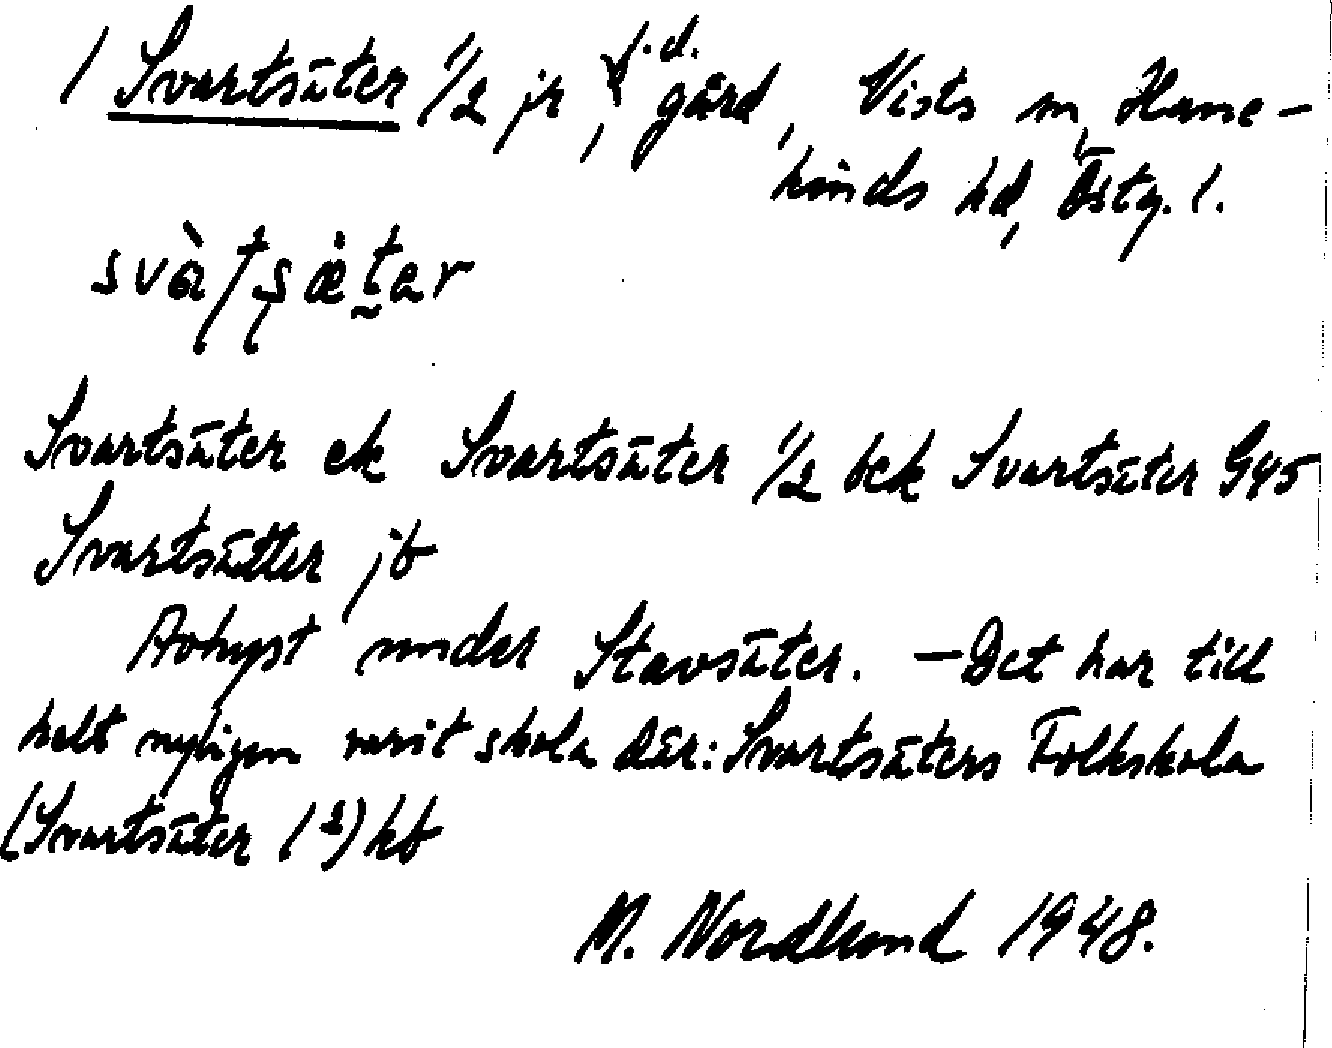 1 Svartsäter 1/2 jr, f.d. gård, Vists sn, Hane-
kinds hd, Östg. l.
svàʈʂæ̀ter
Svartsäter ek Svartsäter 1/2 bek Svartsäter G95
Svartsätter jb
Avhyst under Stavsäter. — Det har till
helt nyligen varit skola där: Svartsäters Folkskola
(Svartsäter 1¹) kb
M. Nordlund 1948.